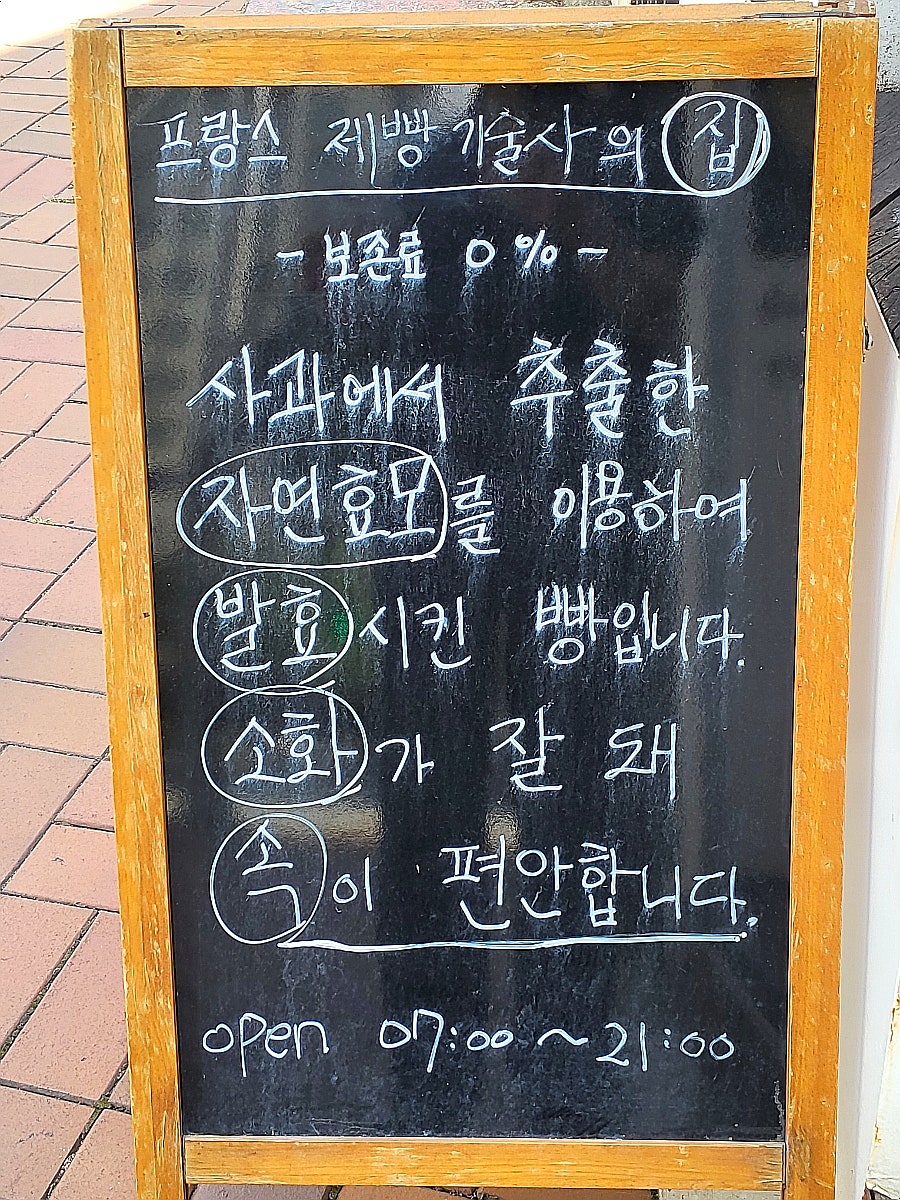 프랑스 제빵기술사의 집
- 보존료 0% -
사과에서 추출한
자연효모를 이용하여
발효시킨 빵입니다.
소화가 잘 돼
속이 편안합니다.
open 07:00~21:00